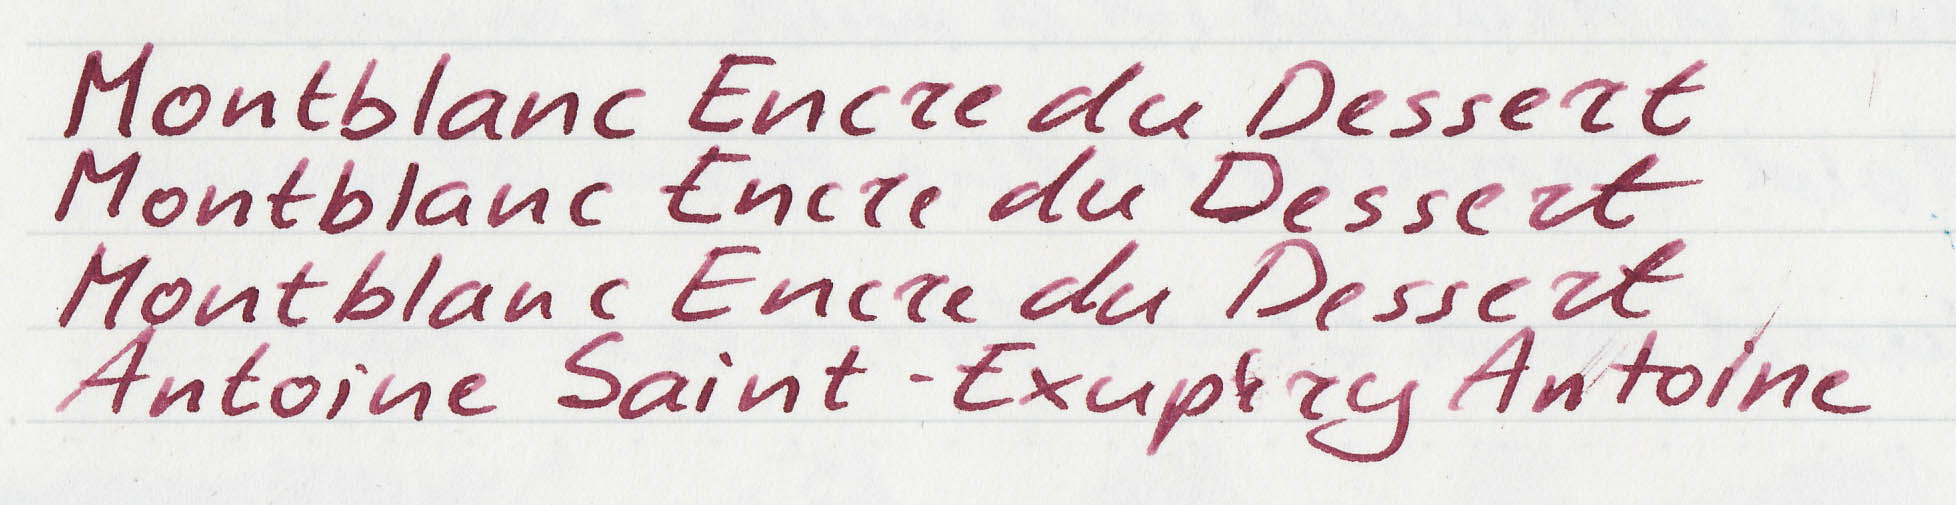 Montblanc Encre du Dessert
Montblanc Encre du Dessert
Montblanc Encre du Dessert
Antoine Saint-Exupéry Antoine